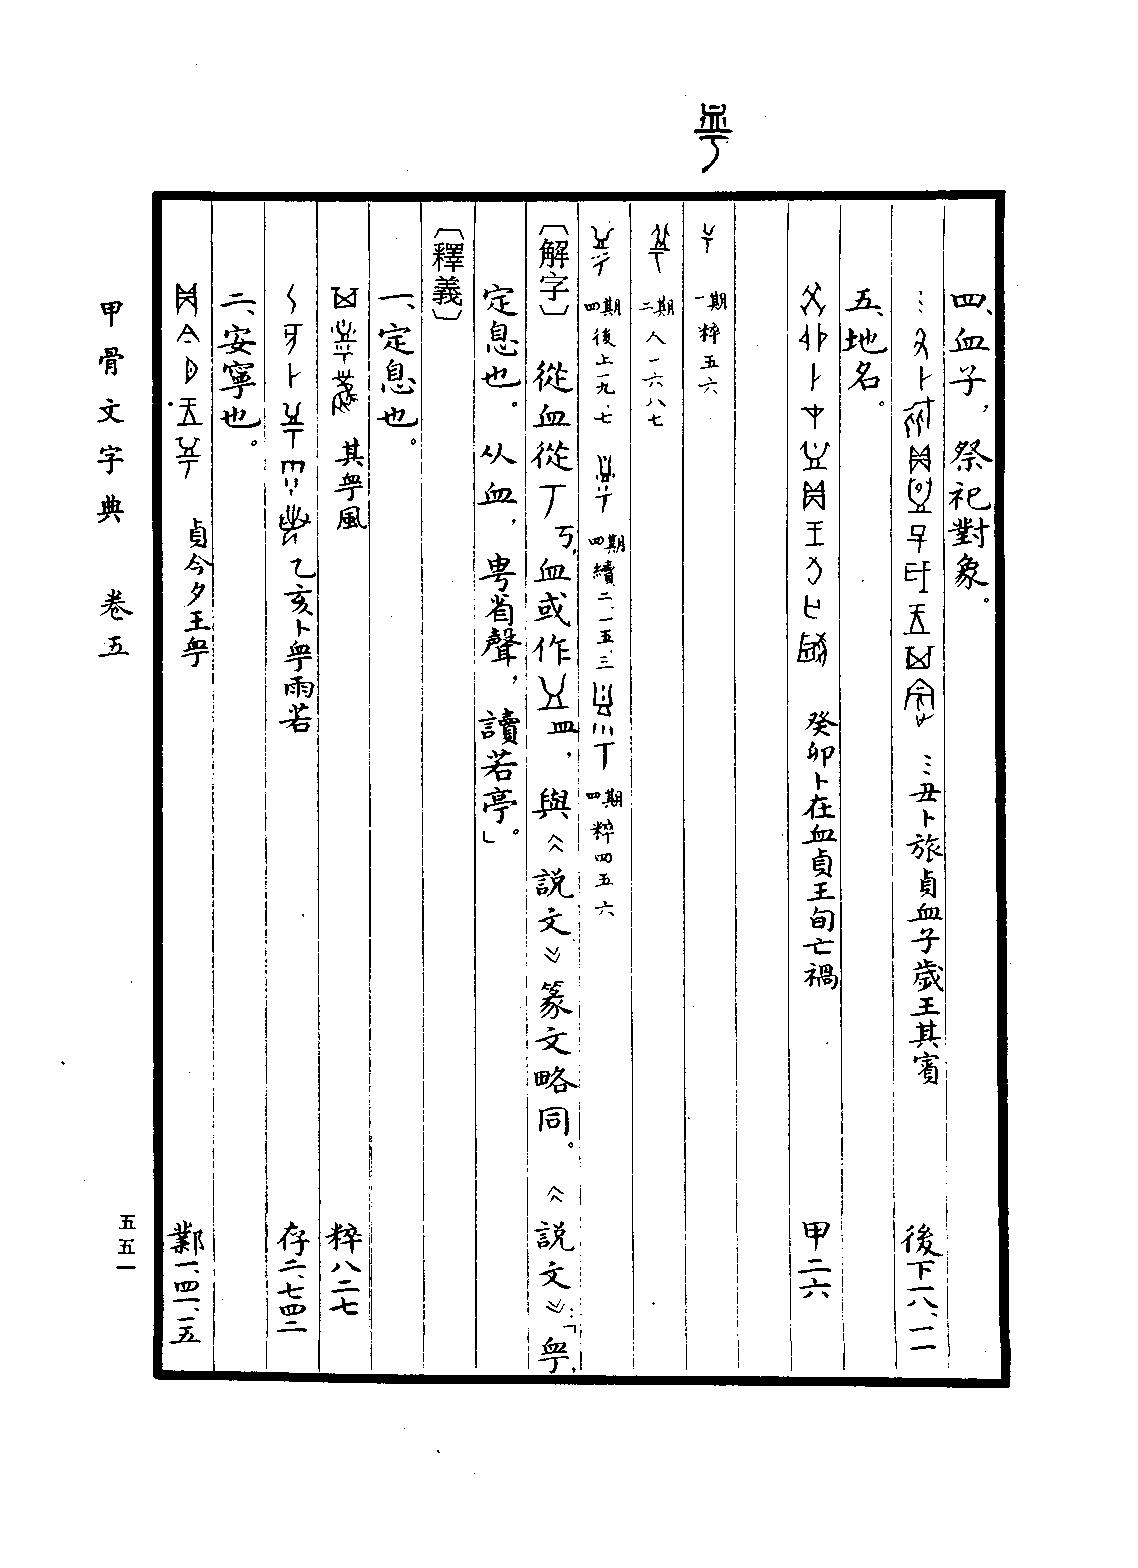 甹
四、血子，祭祀對象。
⋮丑卜旅貞血子歲王其賓 後下一八、一一
五、地名。
癸卯卜在血貞王旬亡禍 甲二六
一期 粹五六
二期 人一六八七
四期 後上一九、七 四期 續二、一五、三 四期 粹四五六
〔解字〕 從血從丅丂，血或作皿，與《說文》篆文略同。《說文》：「甹，
定息也。从血，甹省聲，讀若亭」。
〔釋義〕
一、定息也。
其甹風 粹八二七
乙亥卜甹雨若 存二、七四二
二、安寧也。
貞今夕王甹 鄴一、四一、一五
甲骨文字典 卷五
五五一